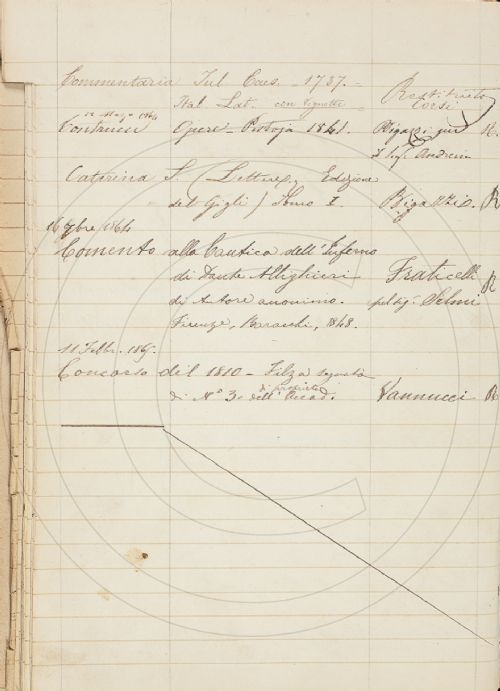 Commentaria Jul. Caes. - 1737. - Restituito
Ital. Lat. con vignette - Corsi
12 Maggio 1864
Contrucci Opere - Pistoja 1841. Bigazzi per R.
I. Sigr. Andrein
Caterina S. (Lettere, Edizione
del Gigli) Tomo I. Bigazzi R
16 7bre 1864
Comento alla Cantica dell'Inferno
di Dante Allighieri Fraticelli R
di Autore anonimo. pel Sig. Selmi
Firenze, Baracchi, 1848.
11 Febbr. 1865.
Concorso del 1810 - Filza segnata
di proprietà
di No 3. dell' Accad. Vannucci R